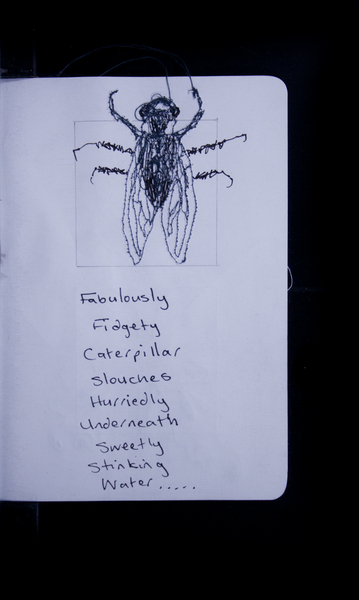 Fabulously
Fidgety
Caterpillar
Slouches
Hurriedly
Underneath
Sweetly
Stinking
Water.....